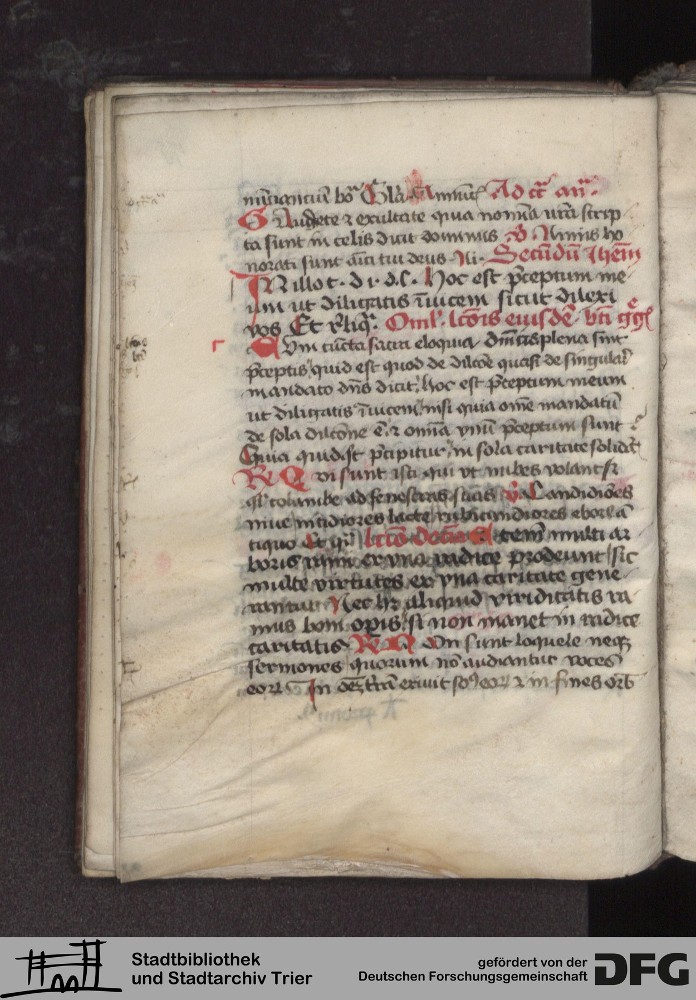 nuntiantium bo Gla Ad ct an
Gaudete ⁊ exultate quia noīna vra scrip
ta sunt in celis dicit dominus v Nimis ho
norati sunt amici tui deus Scdm Iohem
In illo t. d. i. d. s. Hoc est pceptum me
um ut diligatis īuicem sicut dilexi
vos Et rliq. Oml. lcōis eiusdē bti gg
Cum cuncta sacra eloquia dnicis plena sint
pceptis quid est quod de dilcōe quasi de singulari
mandato dns dicit hoc est pceptum meum
ut diligatis īuicem nisi quia omē mandatū
de sola dilcōne ē ⁊ omīa vnū pceptum sunt
Quia quidqd pcipitur in sola caritate solidat
R Qui sunt isti qui vt nubes volant
ql columbe ad fenestras suas v Candidiores
niue nitidiores lacte rubicundiores ebore ā
tiquo Et qi lccō Vt enim multi ar
boris rami ex vna radice prodeunt sic
multe virtutes ex vna caritate gene
rantur Nec hz aliquid viriditatis ra
mus boni opis si non manet in radice
caritatis R Non sunt loquele neqz
sermones quorum nō audiantur voces
eorꝫ In oēm trā exiuit so eorꝫ ⁊ in fines orb
Stadtbibliothek
und Stadtarchiv Trier
gefördert von der
Deutschen Forschungsgemeinschaft
DFG